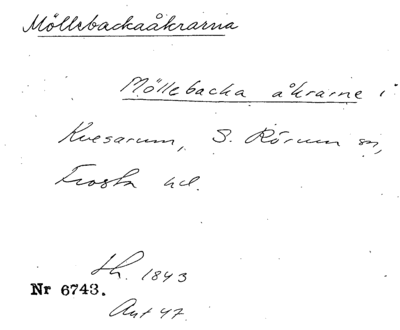 Möllebackaåkrarna
Möllebacka åkrarne i
Kvesarum, S. Rörum sn,
Frosta hd.
Lh. 1843
Nr 6743.
Ant 47